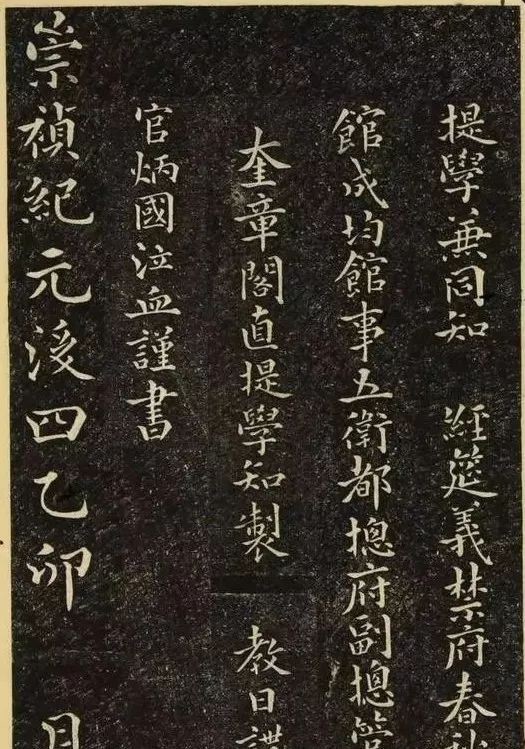 提學兼同知 經筵義禁府春
館成均館事五衛都摠府副摠
奎章閣直提學知製 教日講
官炳國泣血謹書
崇禎紀元後四乙卯 月